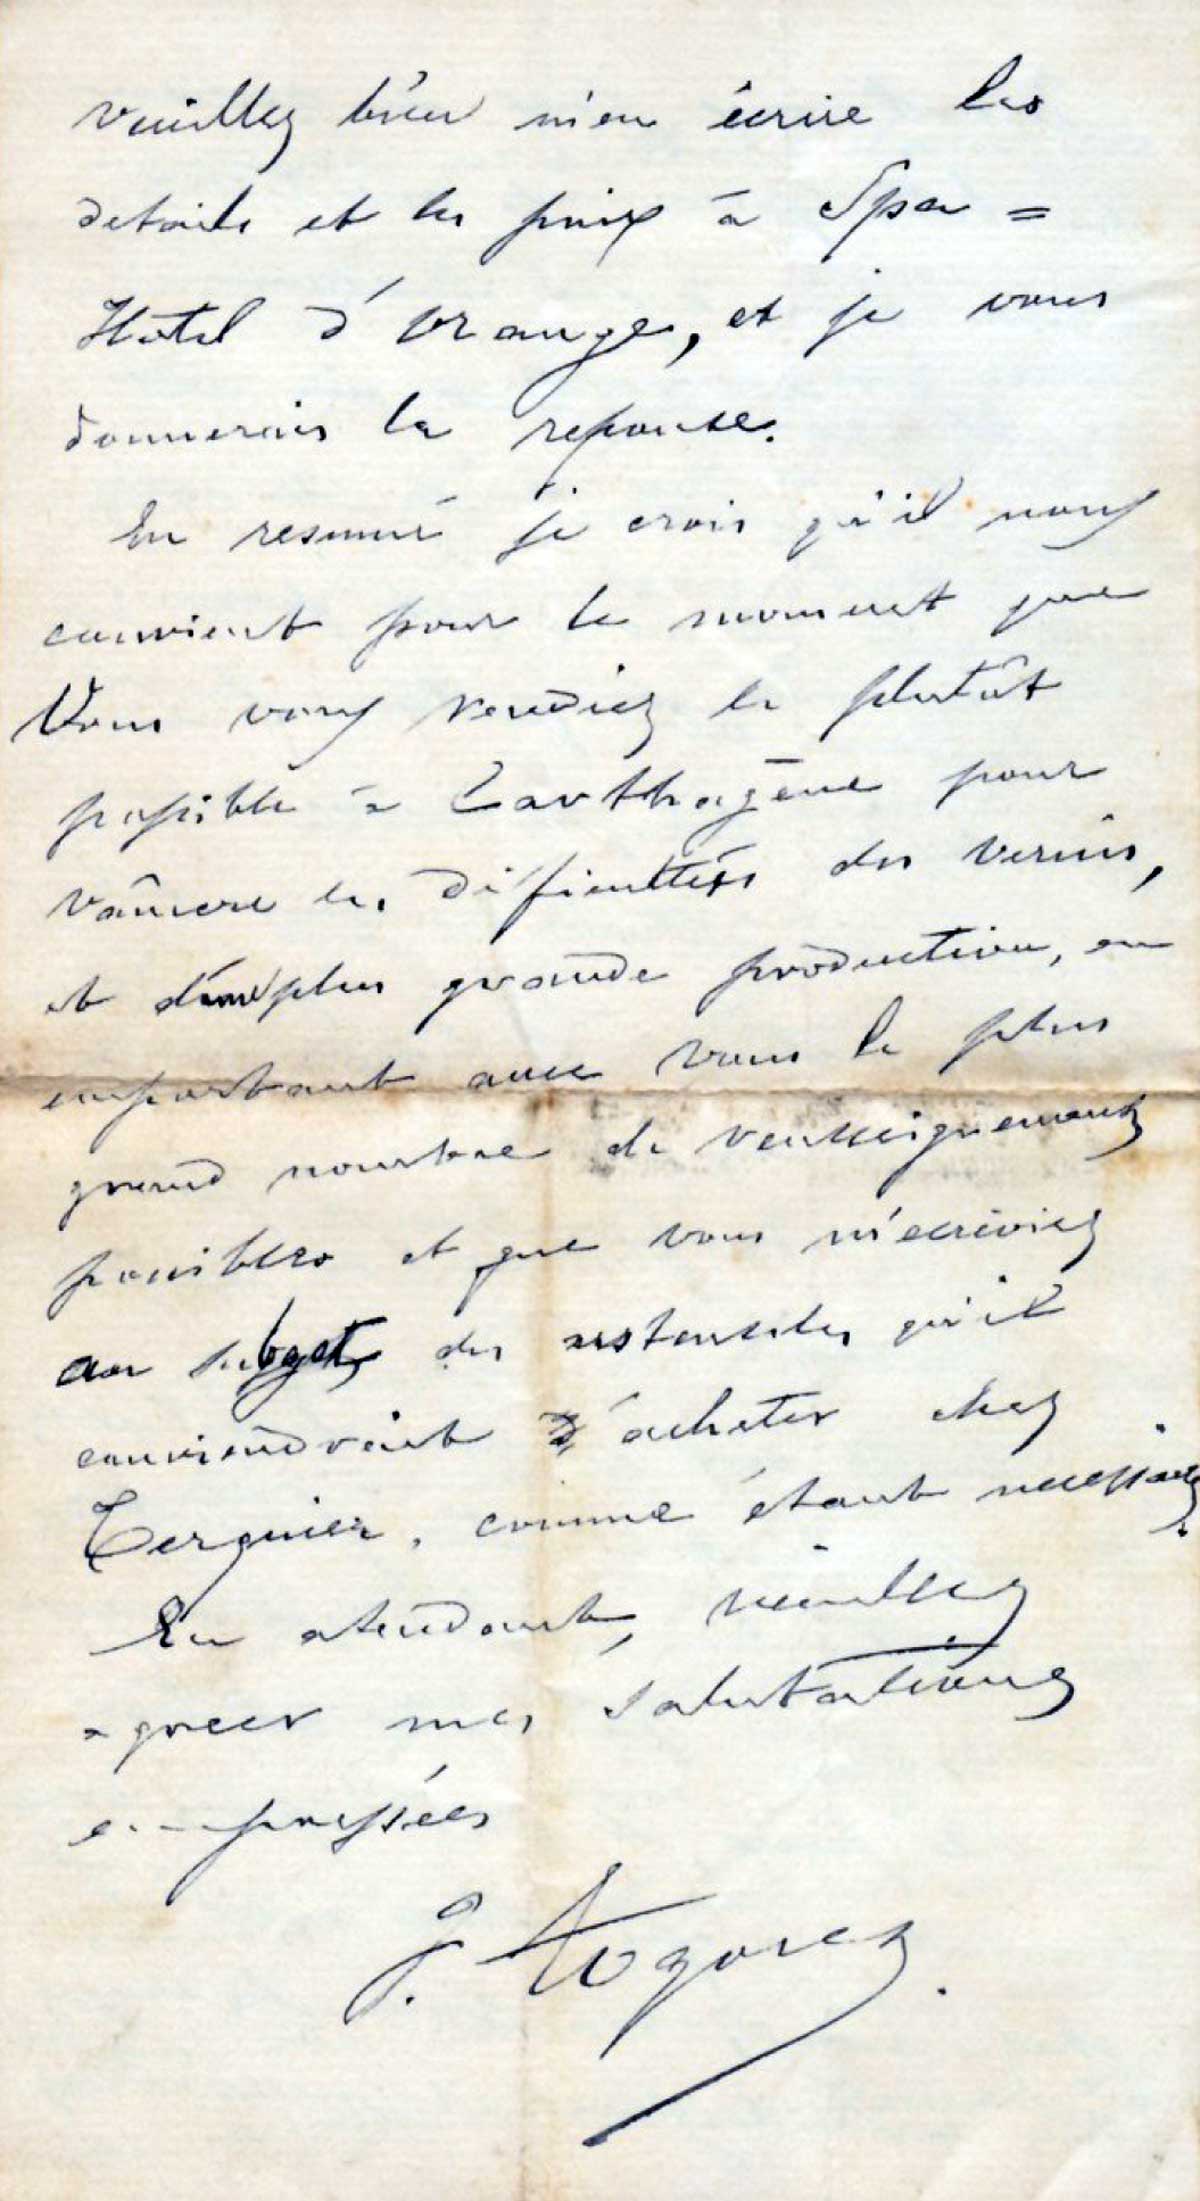 veuillez bien m'en écrire les
details et les prix à Spa =
Hôtel d'Orange, et je vous
donnerais la reponse.
En resumé je crois qu'il nous
convient pour le moment que
Vous vous rendiez le plutôt
possible à Carthagène pour
vâincre les dificultés des vernis,
et d'une plus grande production, en
emportant avec vous le plus
grand nombre de rensseignements
possibles et que vous m'ecriviez
au subget des ustensiles qu'il
conviendrait d'acheter chez
Terguier, comme étant necessaires.
En atendant, veuillez
agreer mes salutations
empressées
J. Togores.